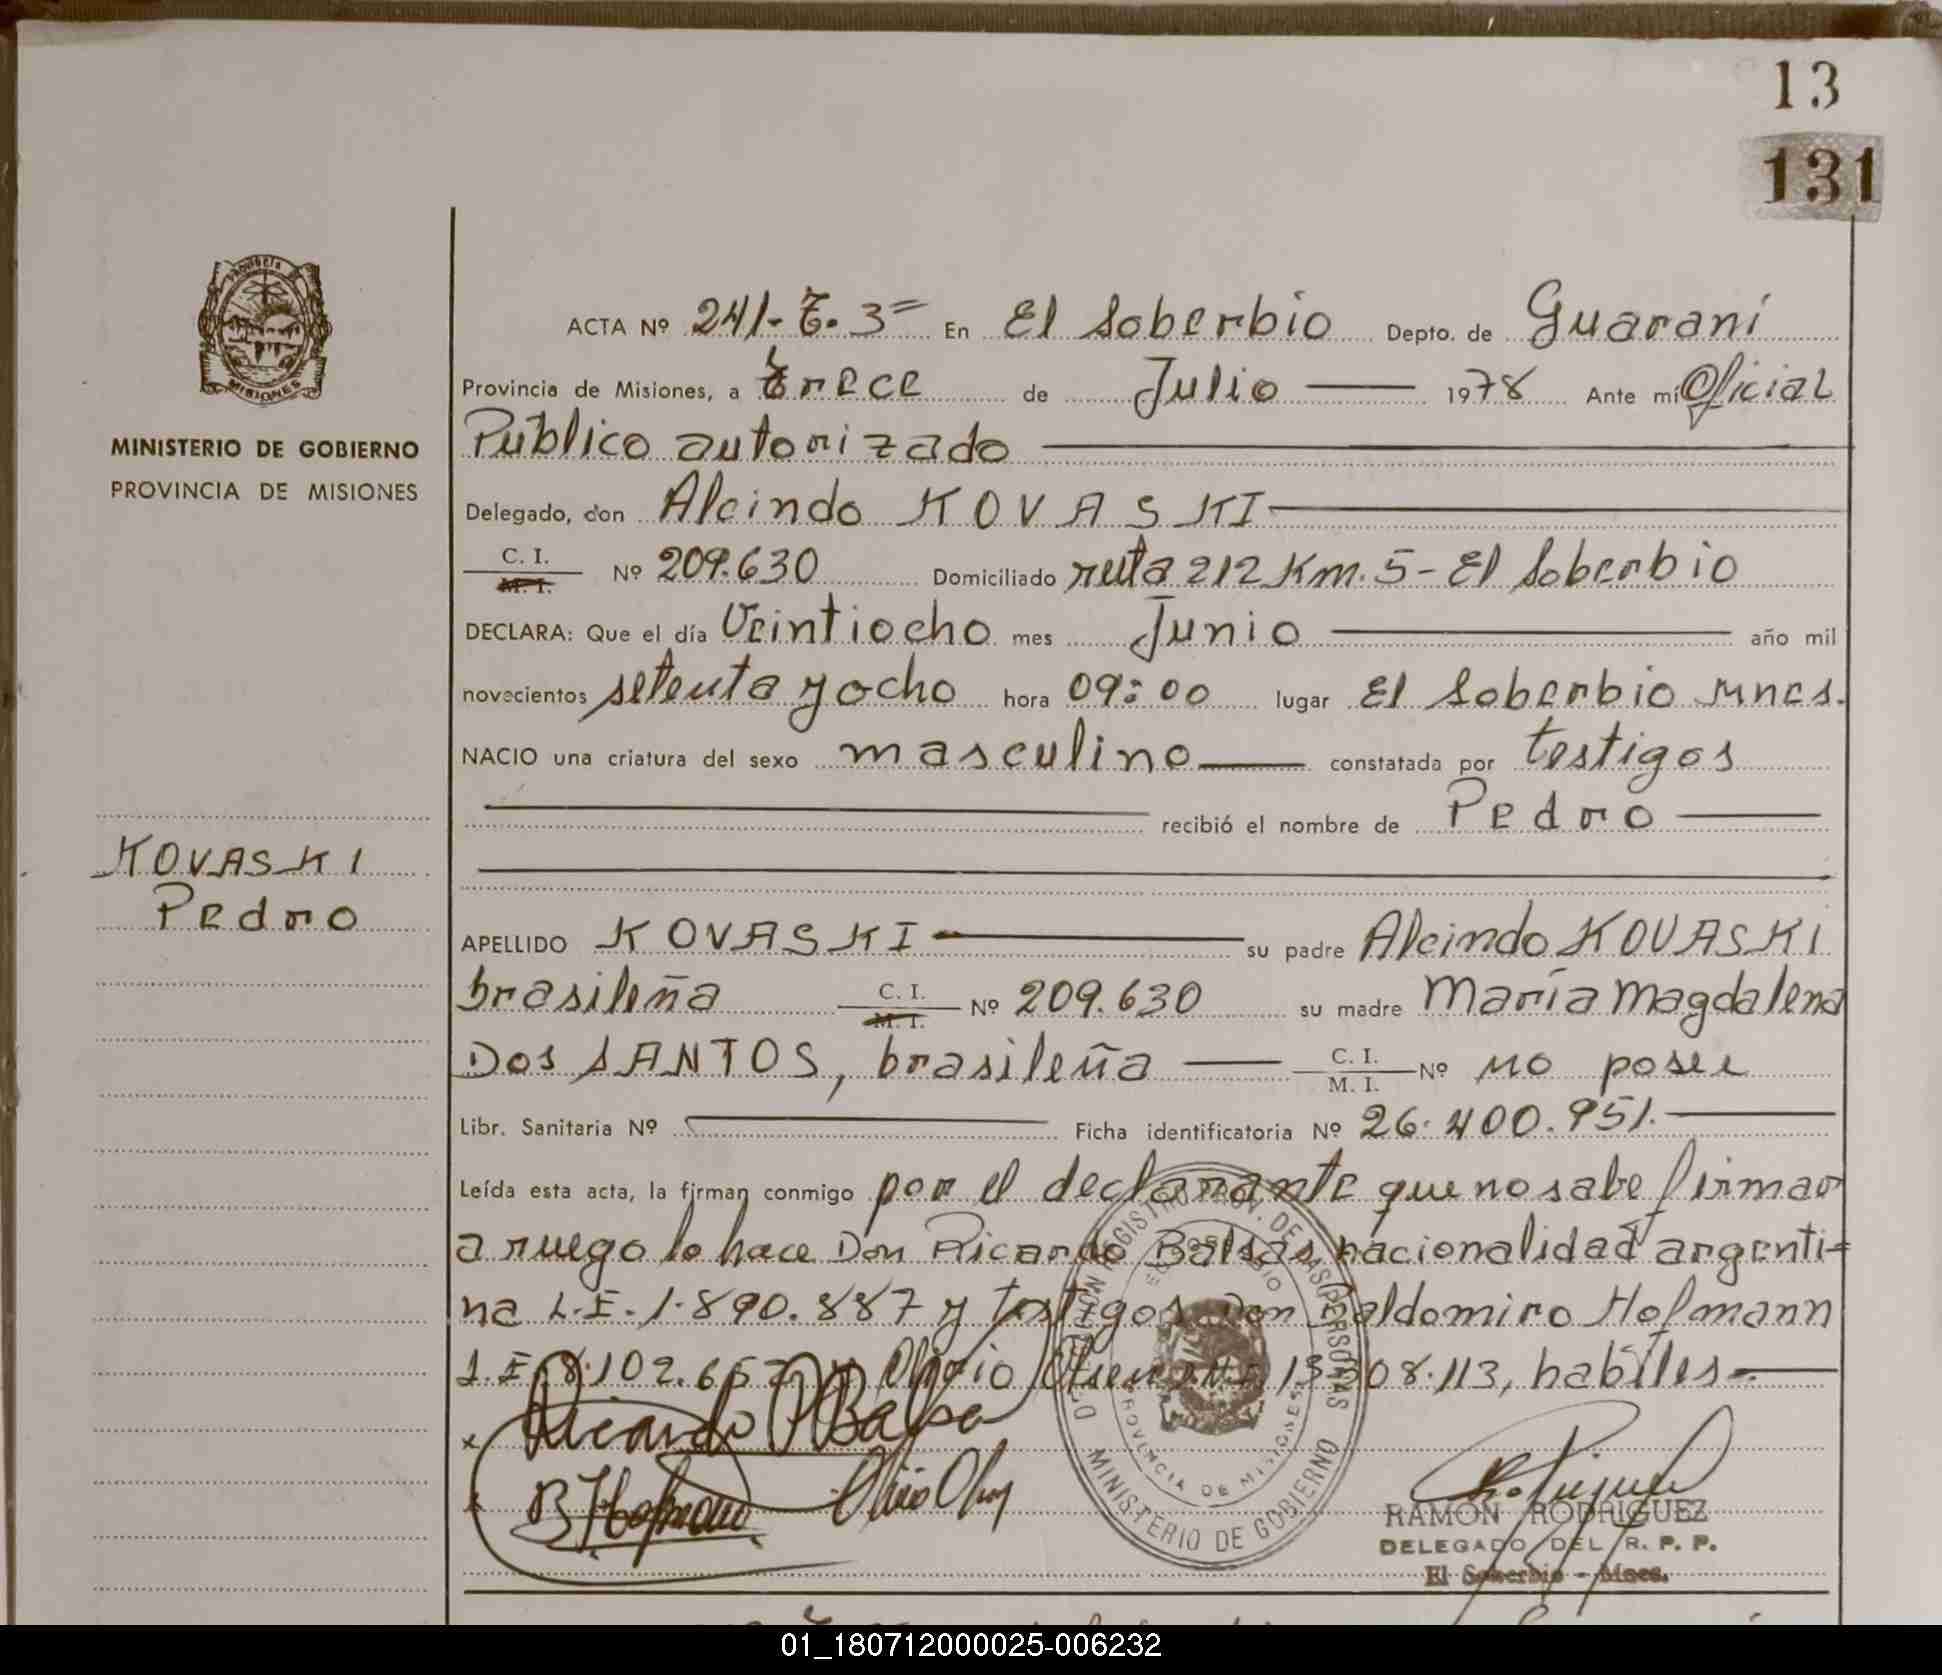 13
131
PROVINCIA DE
MISIONES
MINISTERIO DE GOBIERNO
PROVINCIA DE MISIONES
KOVASKI
Pedro
ACTA Nº 241-T. 3º En El Soberbio Depto. de Guaraní
Provincia de Misiones, a trece de Julio 1978 Ante mí Oficial
Público autorizado
Delegado, don Alcindo KOVASKI
C. I. M. I. Nº 209.630 Domiciliado ruta 212 Km. 5- El Soberbio
DECLARA: Que el día Veintiocho mes Junio año mil
novecientos setenta y ocho hora 09:00 lugar El Soberbio Mnes.
NACIO una criatura del sexo masculino constatada por testigos
recibió el nombre de Pedro
APELLIDO KOVASKI su padre Alcindo KOVASKI
brasileña C. I. M. I. Nº 209.630 su madre María Magdalena
Dos SANTOS, brasileña C. I. M. I. Nº no posee
Libr. Sanitaria Nº Ficha identificatoria Nº 26.400.951.
Leída esta acta, la firman conmigo por el declarante que no sabe firmar
a ruego lo hace Don Ricardo Balsas nacionalidad argenti-
na L.E. 1.890.887 y testigos Don Baldomiro Hofmann
L.E. 8.102.652 y Olivio 13.308.113, habiles
Ricardo Balsa
B Hofmann
MINISTERIO DE GOBIERNO
PROVINCIA DE MISIONES
EL SOBERBIO
RAMON RODRIGUEZ
DELEGADO DEL R. P. P.
El Soberbio - Mnes.
01_180712000025-006232